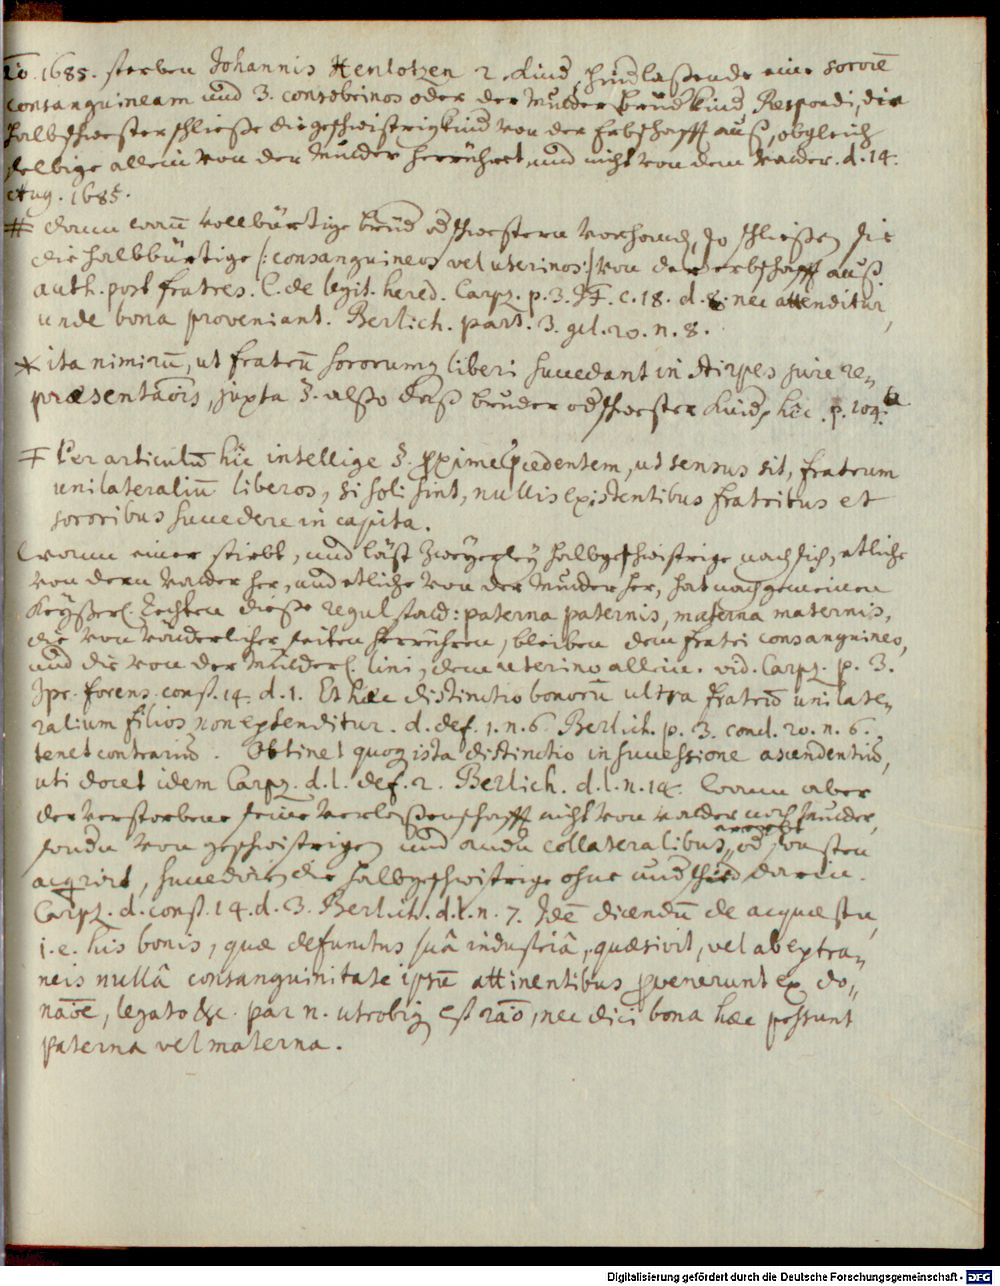 Ao. 1685. sterben Johannis Henlotzen 2. Kind, hinderlaßende eine sororē
consanguineam und 3. consobrinos oder der Mutter bruder kind, Respondi, die
halbschwester schließe die geschwistrigkind von der Erbschafft auß, obgleich
selbige allein von der Mutter herrühret und nicht von dem Vatter. d. 14.
Aug. 1685.
# dann wan̄ vollbürtige brüd od schwestern vorhand, so schließen sie
die halbbürtige /: consanguineos vel uterinos :/ von der erbschafft auß.
auth. post fratres. C. de legit. hered. Carpz. p. 3. JF. c. 18. d. 8. nec attenditur,
unde bona proveniant. Berlich. part. 3. gcl. 20. n. 8.
* ita nimirū, ut fratrū sororumq liberi succedant in stirpes jure re„
præsentaōis, juxta §. also daß bruder od schwester kind, hîc. p. 104. a
Ŧ Per articulū hîc intellige §. pxime pcedentem, ut sensus sit, fratrum
unilateraliū liberos, si soli sint, nullis existentibus fratribus et
sororibus succedere in capita.
Wann einer stirbt, und läst zweyerley halbgeschwistrige nach sich, etliche
von dem Vatter her, und etliche von der Mutter her, hat nach gemeinen
Keyßerl. Rechten diese regul statt: paterna paternis, materna maternis,
die von vätterlicher seiten herrühren, bleiben dem fratri consanguineo,
und die von der Mütterl. lini, dem uterino allein. vid. Carpz. p. 3.
Jpr. forens. const. 14. d. 1. Et hæc distinctio bonorū ultra fratrū unilate„
ralium filios non extenditur. d. def. 1. n. 6. Berlich. p. 3. concl. 20. n. 6.,
tenet contrariū. Obtinet quoq ista distinctio in successione ascendentiū,
uti docet idem Carpz. d. l. def. 2. Berlich. d. l. n. 14. Wann aber
der verstorbene seine verlaßenschafft nicht von Vatter noch Mutter,
sondn von geschwistrigen und andn collateralibus ererebt, od sonsten
acqrirt, succedirn die halbgeschwistrige ohne underschied darin.
Carpz. d. const. 14. d. 3. Berlich. d. l. n. 7. Idē dicendū de acquæstu,
i. e. his bonis, quæ defunctus suâ industriâ, quæsivit, vel ab extra„
neis nullâ consanguinitate ipsū attinentibus pvenerunt ex do„
naōe, legato &c. par n. utrobiq est raō, nec dici bona hæc possunt
paterna vel materna.
Digitalisierung gefördert durch die Deutsche Forschungsgemeinschaft - DFG